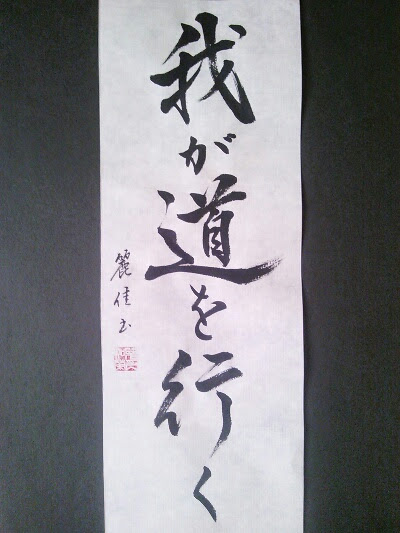 我が道を行く
麗佳书